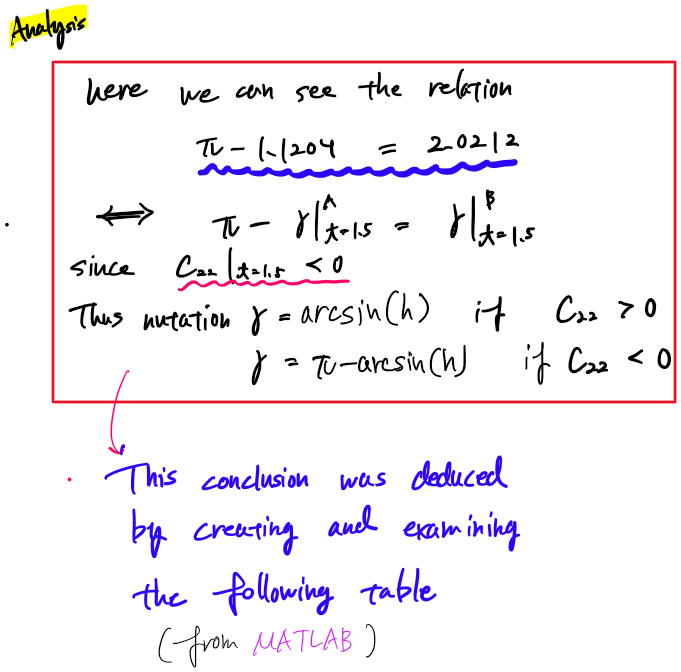 Analysis
here we can see the relation
π - 1.1204 = 2.0212
⟺ π - γ|ᴬ_t=1.5 = γ|ᴮ_t=1.5
since C₂₂|_t=1.5 < 0
Thus nutation γ = arcsin(h) if C₂₂ > 0
γ = π-arcsin(h) if C₂₂ < 0
This conclusion was deduced
by creating and examining
the following table
(from MATLAB)